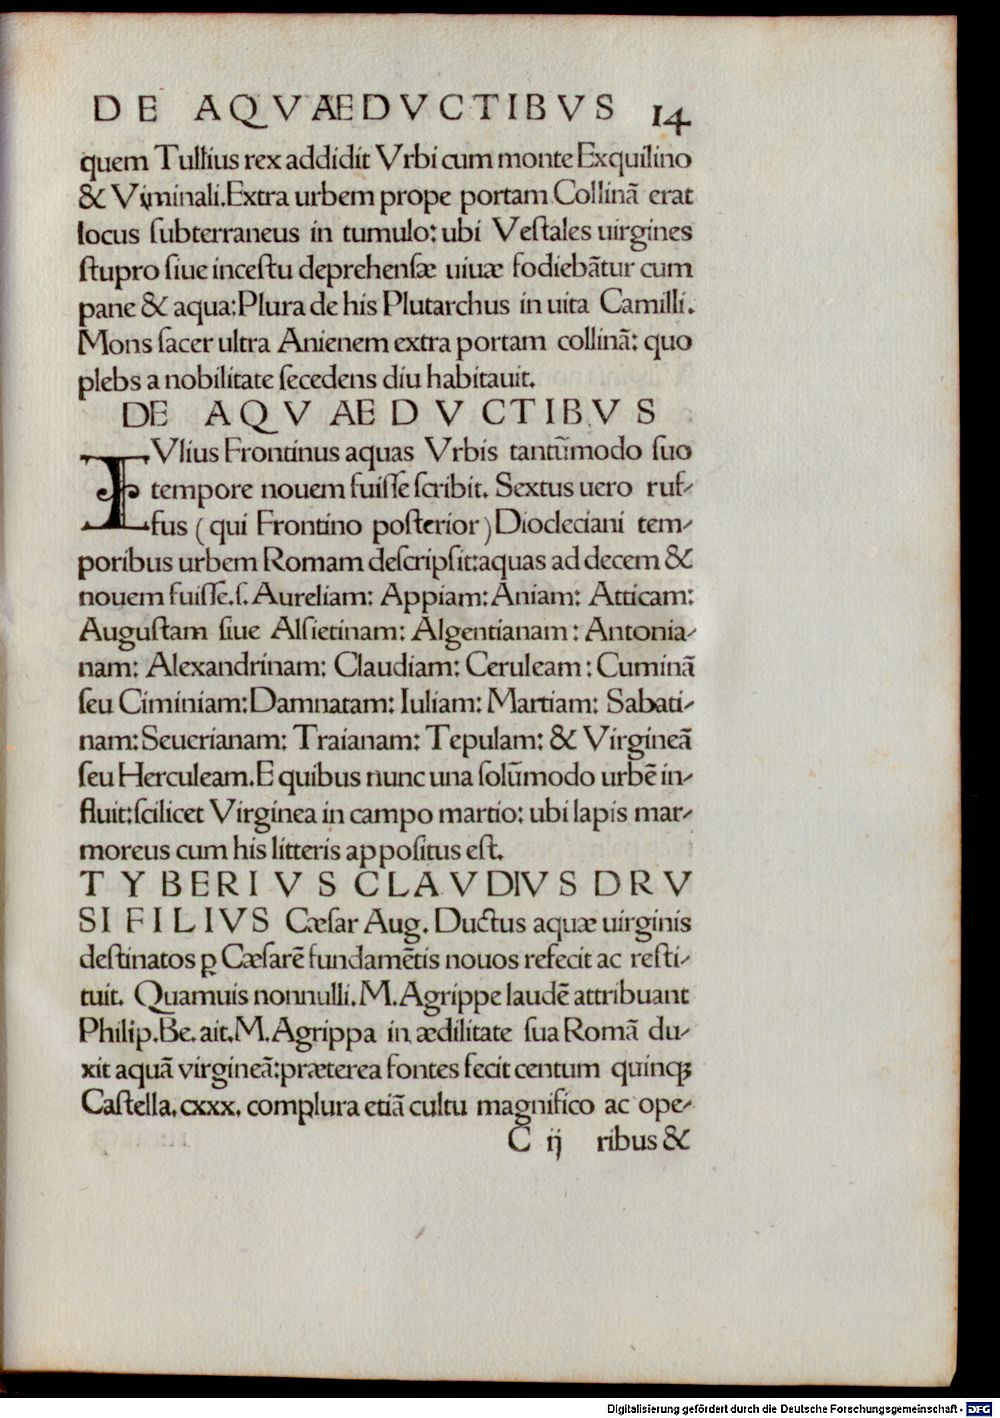 DE AQVÆDVCTIBVS 14
quem Tullius rex addidit Vrbi cum monte Exquilino
& Viminali.Extra urbem prope portam Collinã erat
locus ſubterraneus in tumulo: ubi Veſtales uirgines
ſtupro ſiue inceſtu deprehenſæ uiuæ fodiebãtur cum
pane & aqua:Plura de his Plutarchus in uita Camilli.
Mons ſacer ultra Anienem extra portam collinã: quo
plebs a nobilitate ſecedens diu habitauit.
DE AQVAEDVCTIBVS
IVlius Frontinus aquas Vrbis tantũmodo ſuo
tempore nouem fuiſſe ſcribit. Sextus uero ruf-
fus (qui Frontino poſterior) Diocleciani tem-
poribus urbem Romam deſcripſit:aquas ad decem &
nouem fuiſſe.ſ. Aureliam: Appiam: Aniam: Atticam:
Auguſtam ſiue Alſietinam: Algentianam: Antonia-
nam: Alexandrinam: Claudiam: Ceruleam: Cuminã
ſeu Ciminiam: Damnatam: Iuliam: Martiam: Sabati-
nam: Seuerianam: Traianam: Tepulam: & Virgineã
ſeu Herculeam.E quibus nunc una ſolũmodo urbẽ in-
fluit:ſcilicet Virginea in campo martio: ubi lapis mar-
moreus cum his litteris appoſitus eſt.
TYBERIVS CLAVDIVS DRV
SI FILIVS Cæſar Aug. Ductus aquæ uirginis
deſtinatos ꝑ Cæſarẽ fundamẽtis nouos refecit ac reſti-
tuit. Quamuis nonnulli.M.Agrippe laudẽ attribuant
Philip.Be.ait.M.Agrippa in ædilitate ſua Romã du-
xit aquã virgineã:præterea fontes fecit centum quinqꝫ
Caſtella.cxxx. complura etiã cultu magnifico ac ope-
C ij ribus &
Digitalisierung gefördert durch die Deutsche Forschungsgemeinschaft - DFG